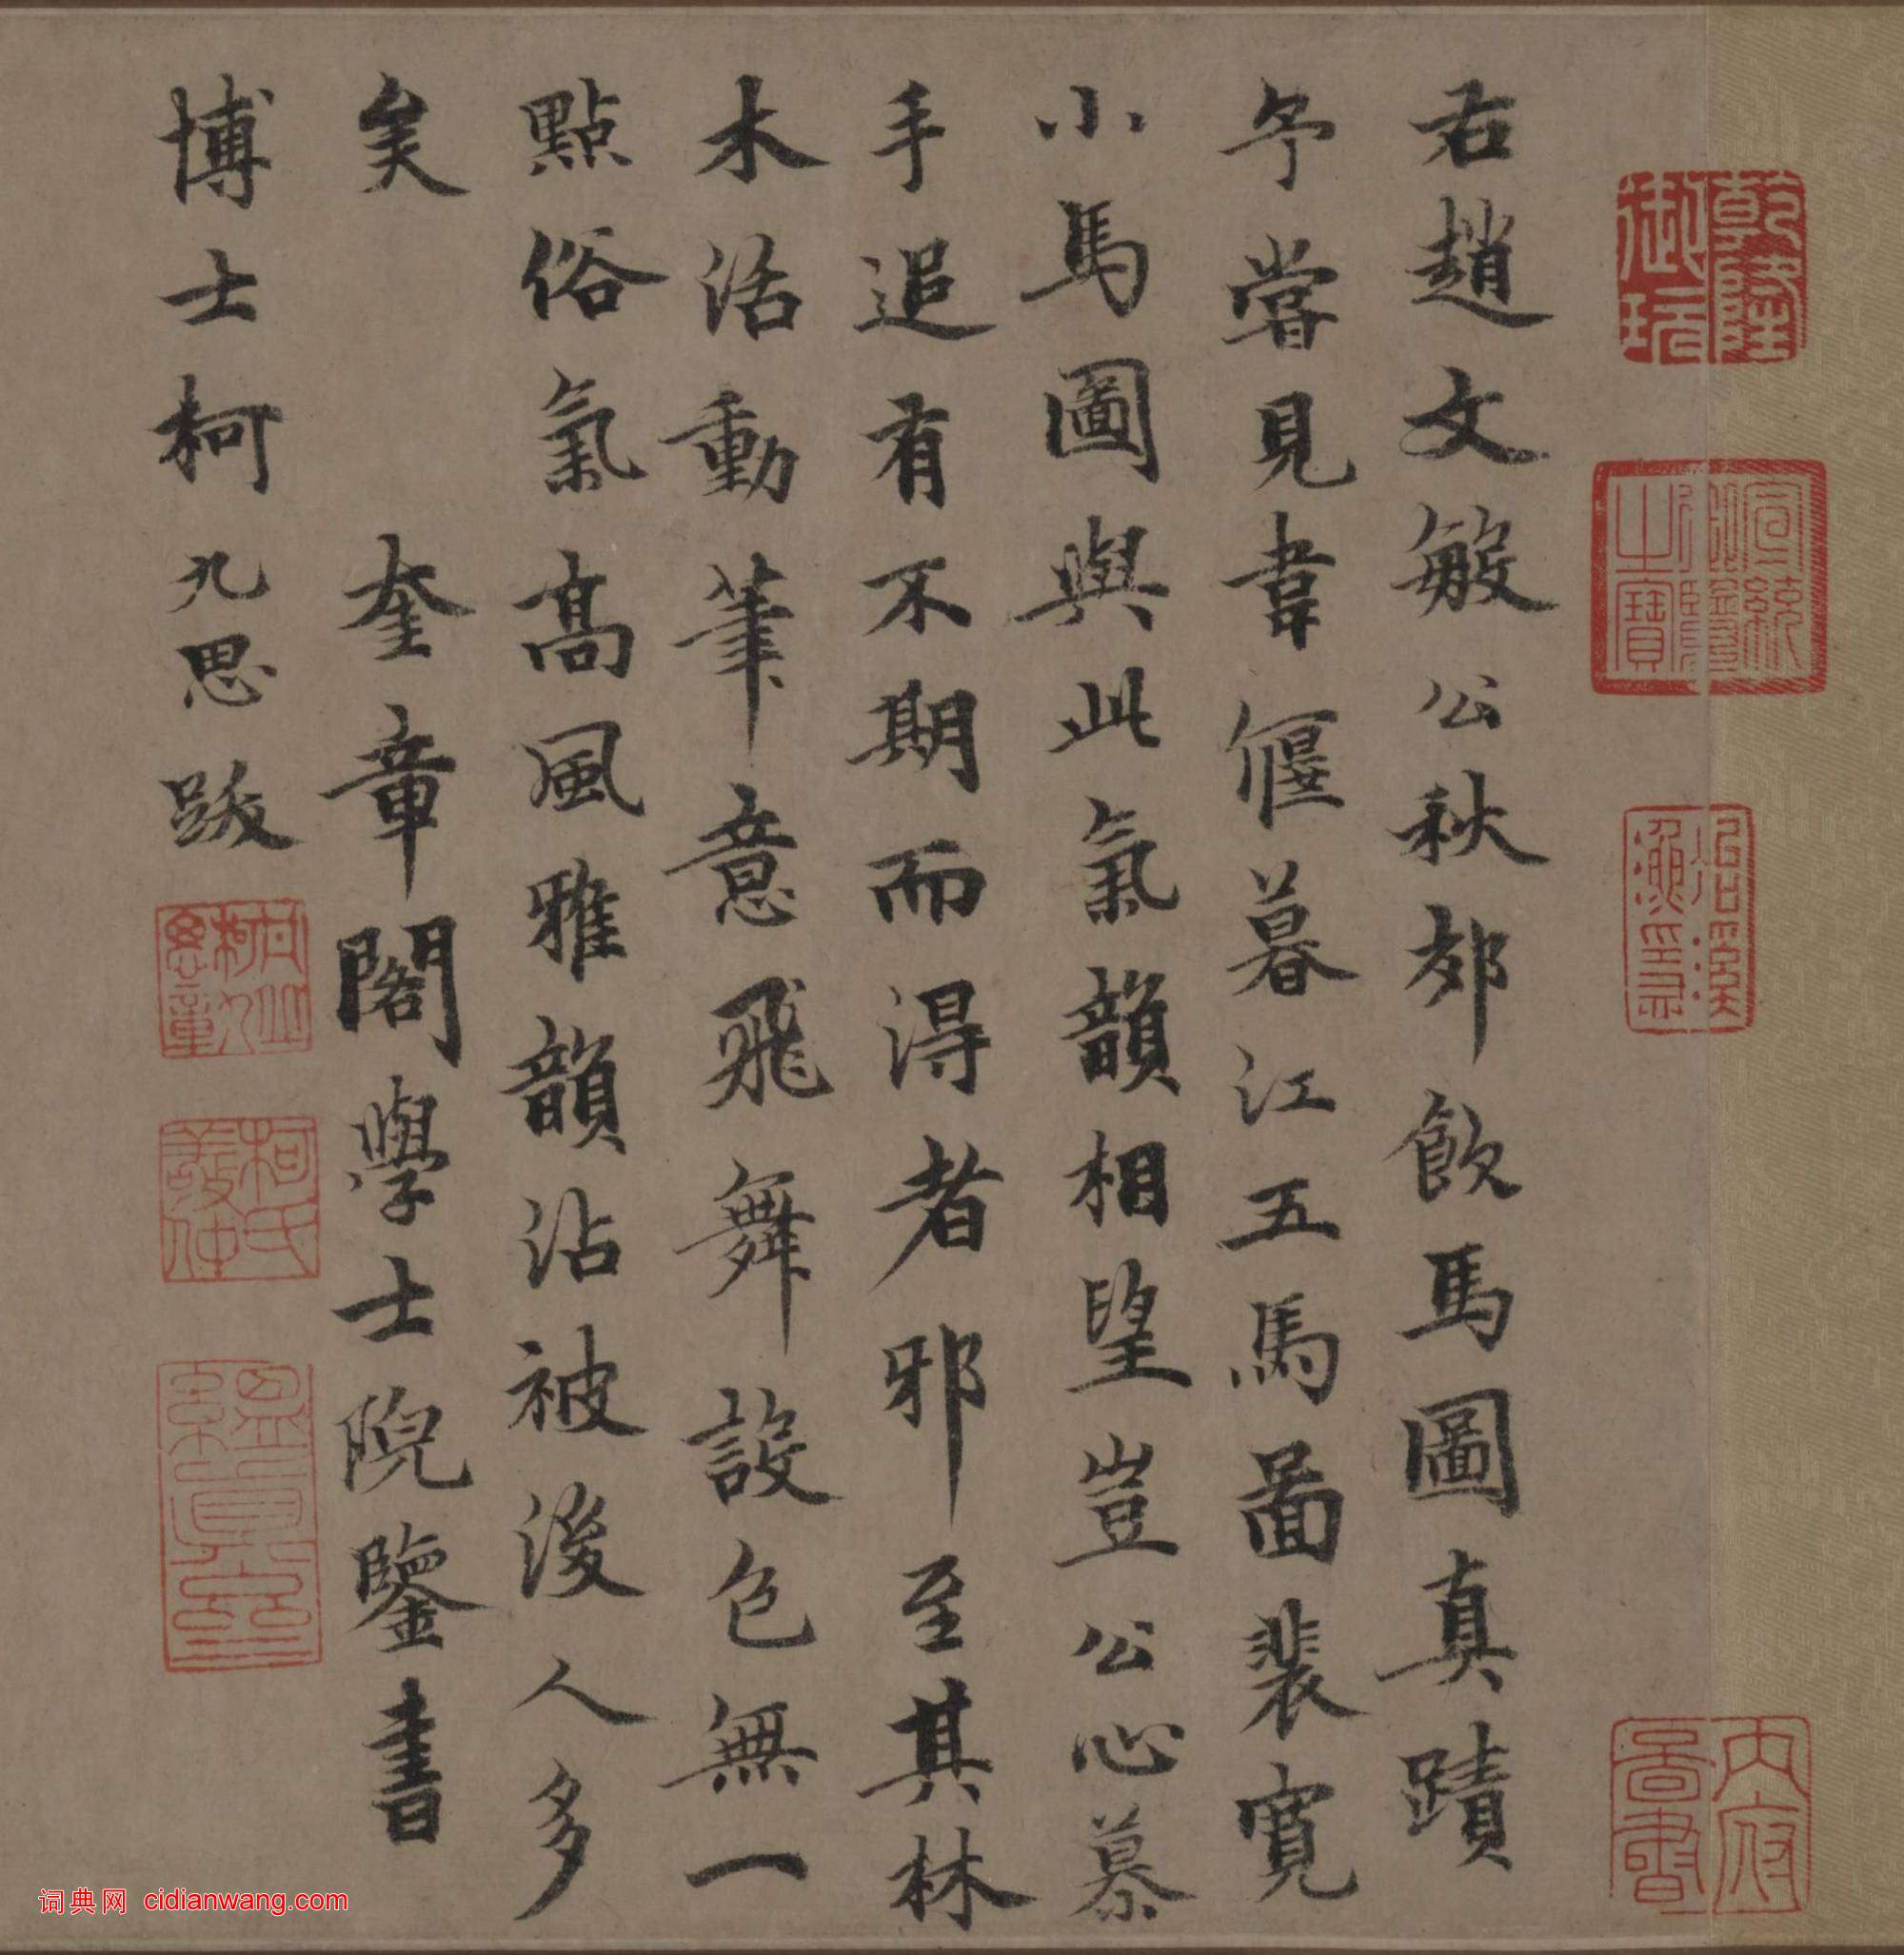 右趙文敏公秋郊飲馬圖真蹟
予嘗見韋偃暮江五馬圖裴寬
小馬圖與此氣韻相望豈公心慕
手追有不期而得者邪至其林
木活動筆意飛舞設色無一
點俗氣高風雅韻沾被後人多
矣 奎章閣學士院鑒書
博士柯九思跋
乾隆御玩
宣統御覽之寶
沮溪漁隱
內府圖書
柯氏敬仲
縕真堂
词典网 cidianwang.com